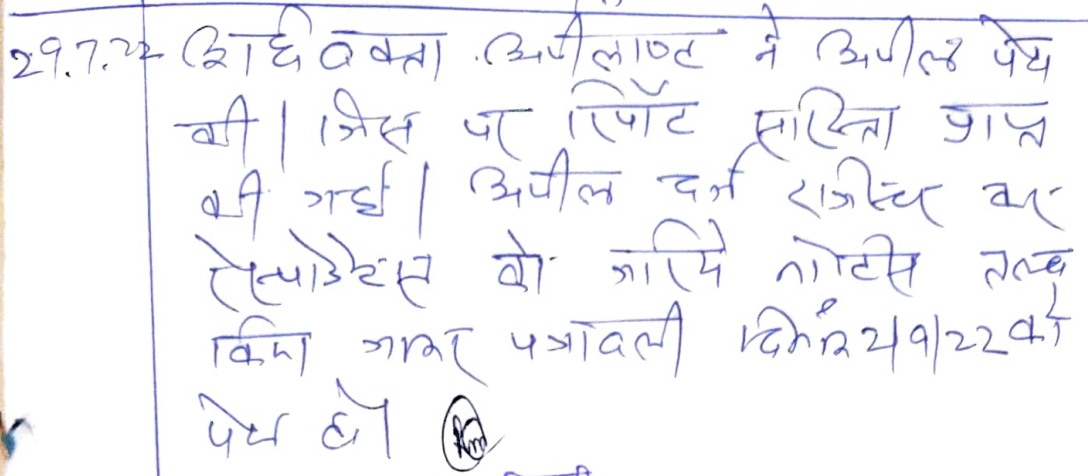 29.7.22 अधिवक्ता अपीलाण्ट ने अपील पेश
की। जिस पर रिपोर्ट सरिस्ता प्राप्त
की गई। अपील दर्ज रजिस्टर कर
रेस्पोडेन्टस को जरिये नोटिस तलब
किया जाकर पत्रावली दिनांक 2/9/22 को
पेश हो।